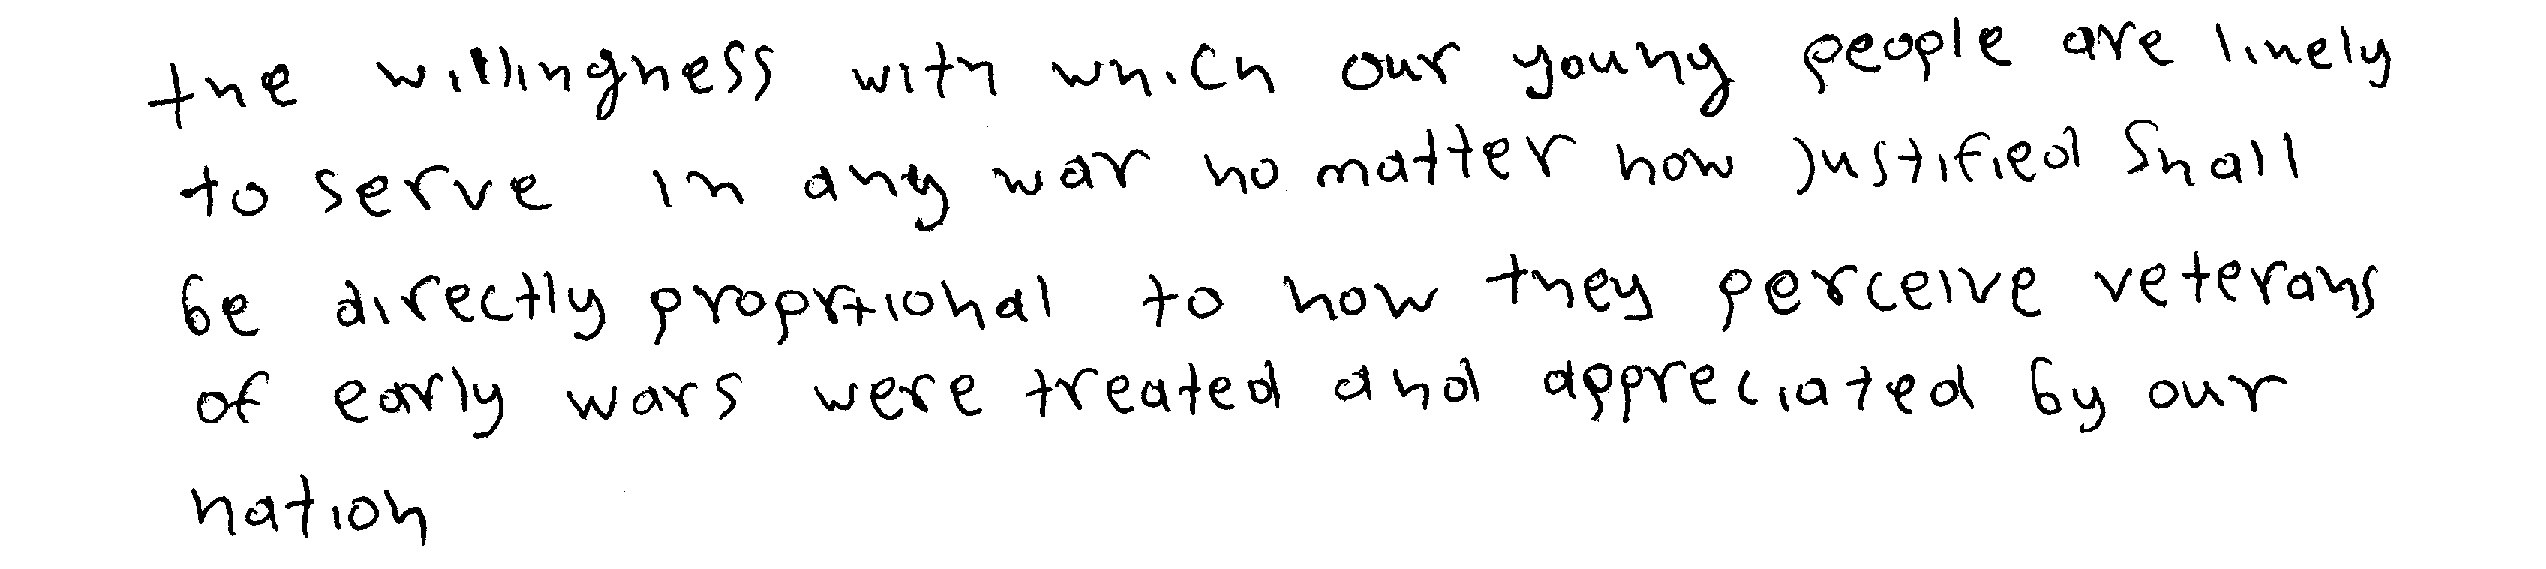 the willingness with which our young people are likely
to serve in any war no matter how justified shall
be directly proprtional to how they perceive veterans
of early wars were treated and appreciated by our
nation